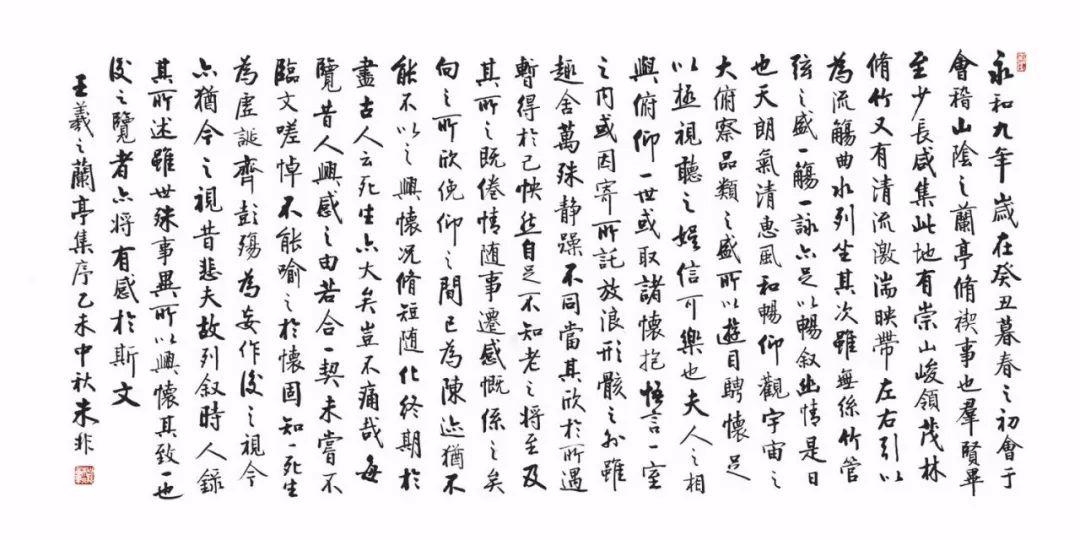 永和九年歲在癸丑暮春之初會于
會稽山陰之蘭亭脩禊事也羣賢畢
至少長咸集此地有崇山峻領茂林
脩竹又有清流激湍映帶左右引以
為流觴曲水列坐其次雖無絲竹管
弦之盛一觴一詠亦足以暢敘幽情是日
也天朗氣清惠風和暢仰觀宇宙之
大俯察品類之盛所以遊目騁懷足
以極視聽之娛信可樂也夫人之相
與俯仰一世或取諸懷抱悟言一室
之內或因寄所託放浪形骸之外雖
趣舍萬殊静躁不同當其欣於所遇
暫得於己怏然自足不知老之將至及
其所之既倦情随事遷感慨係之矣
向之所欣俛仰之間已為陳迹猶不
能不以之興懷況脩短随化終期於
盡古人云死生亦大矣豈不痛哉每
覽昔人興感之由若合一契未嘗不
臨文嗟悼不能喻之於懷固知一死生
為虛誕齊彭殤為妄作後之視今
亦猶今之視昔悲夫故列叙時人錄
其所述雖世殊事異所以興懷其致一也
後之覽者亦將有感於斯文
王羲之蘭亭集序乙未中秋朱非